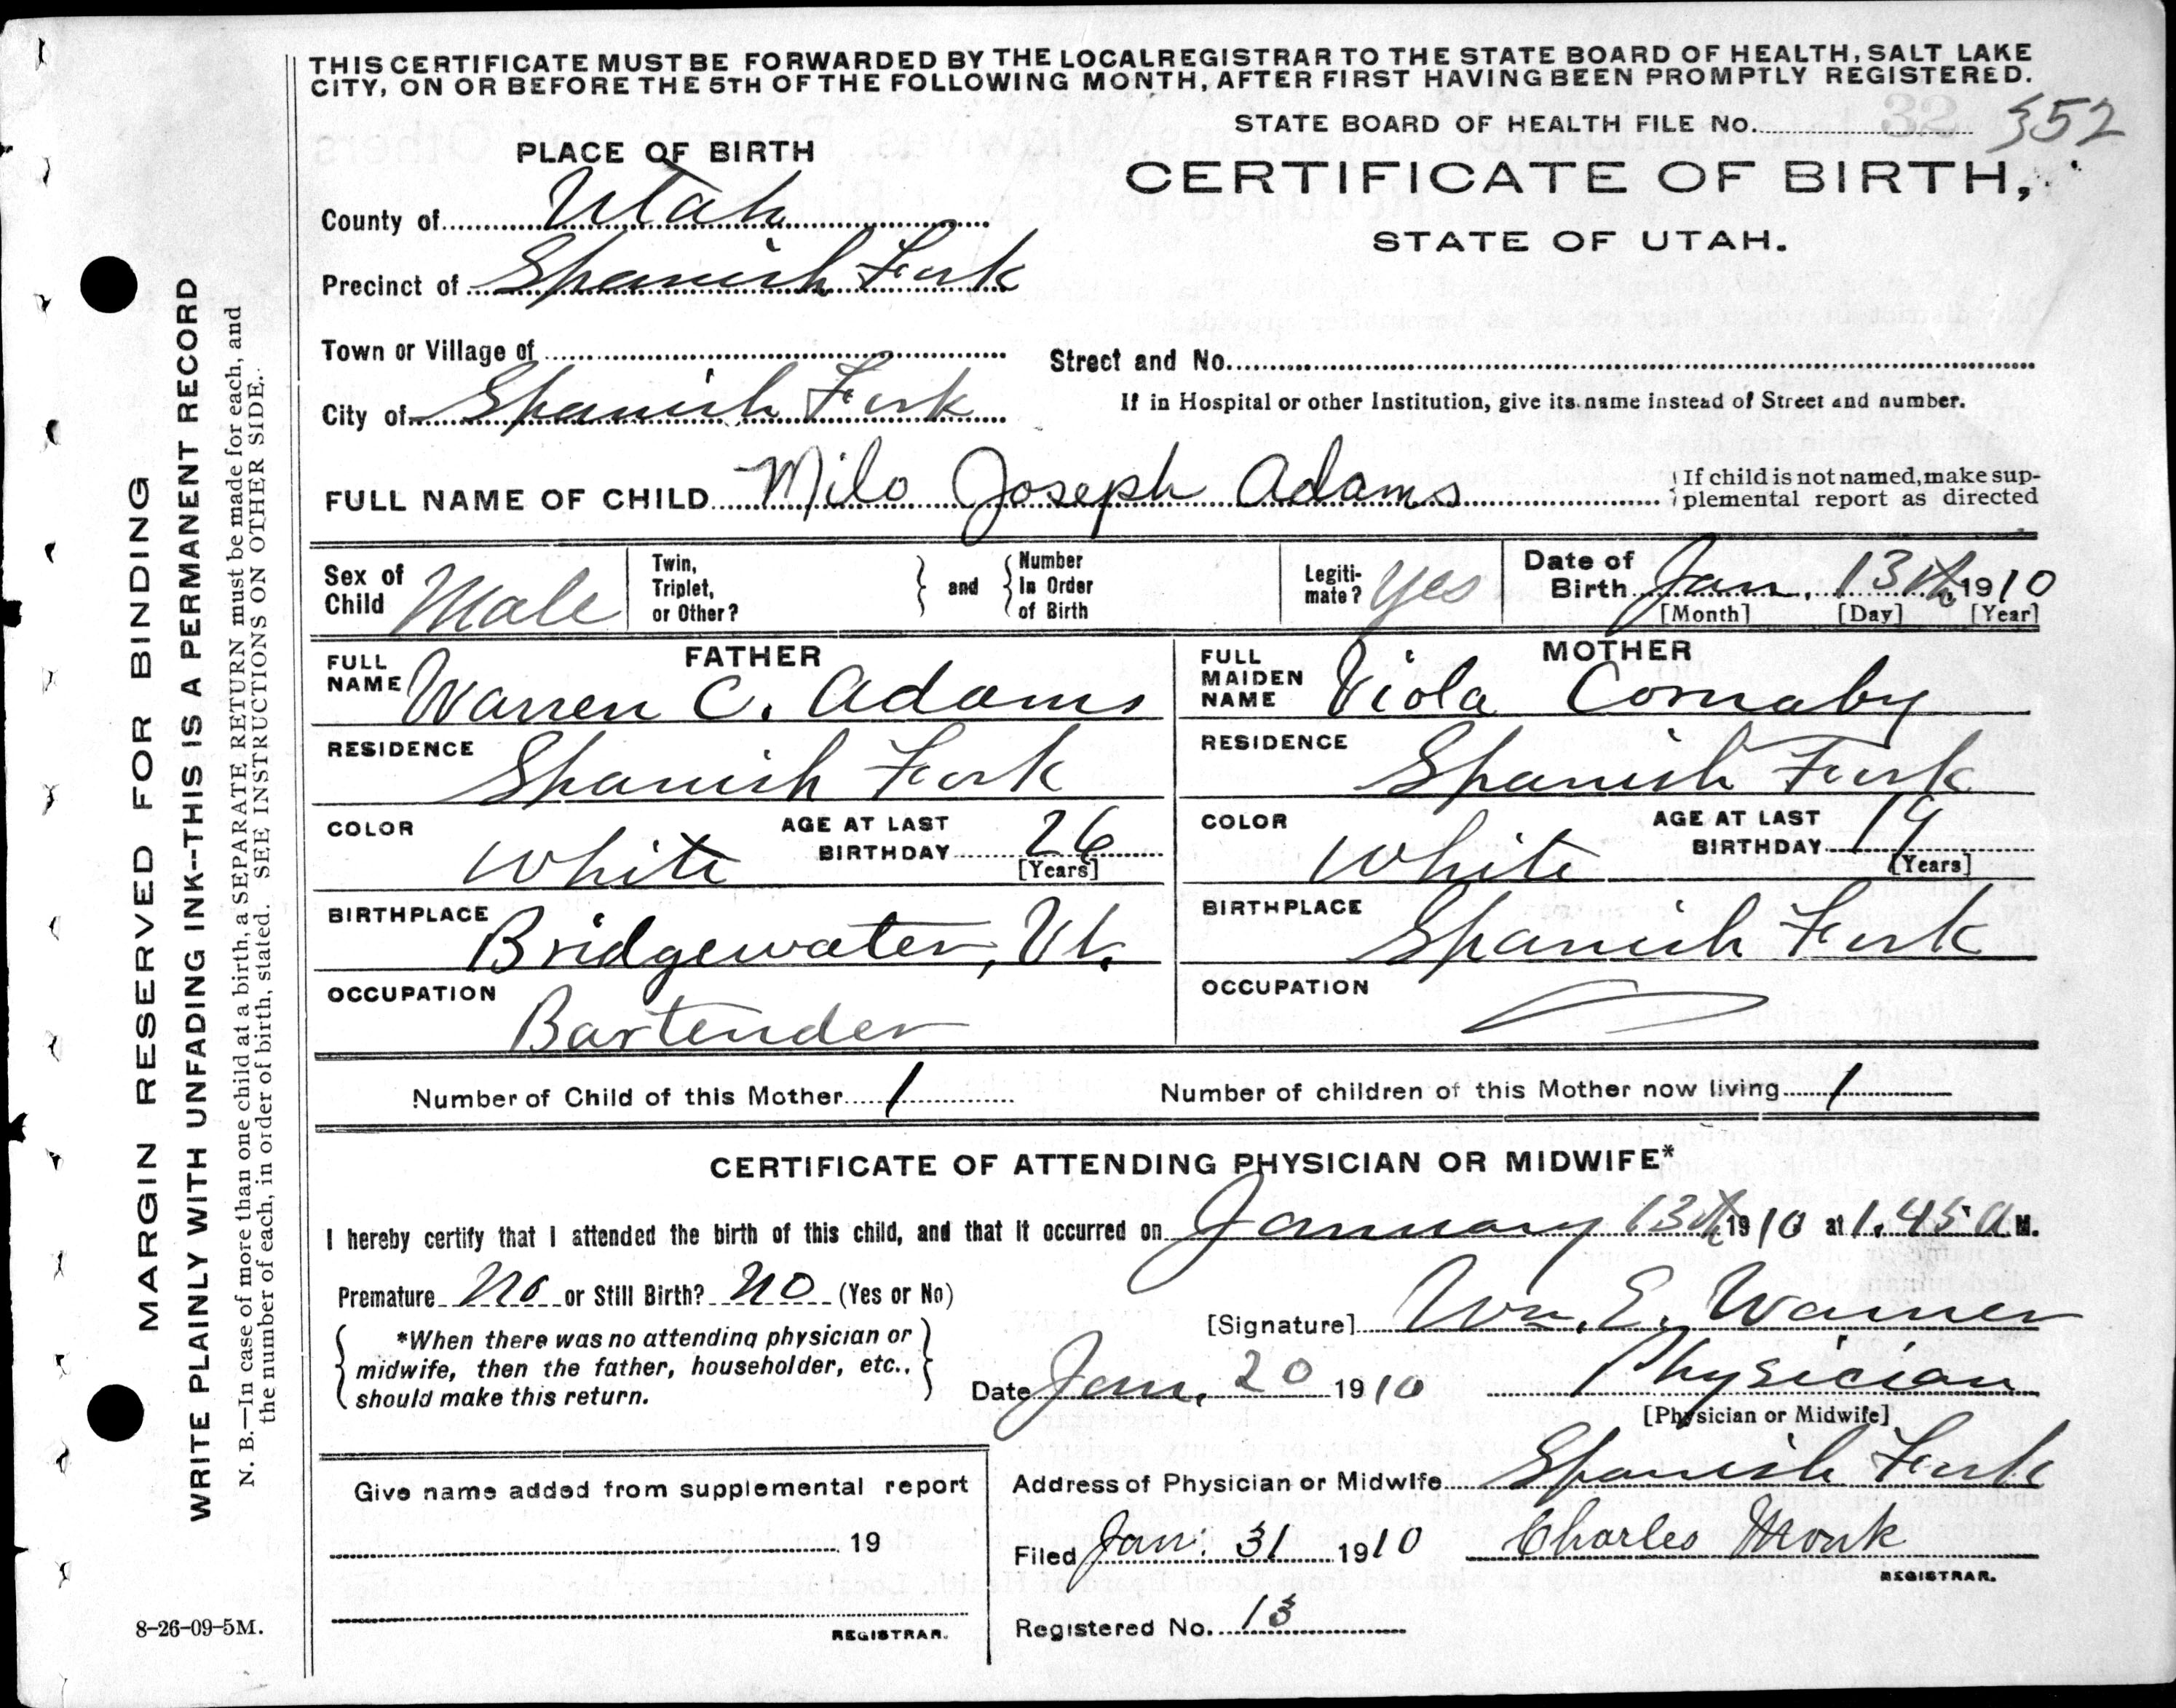 THIS CERTIFICATE MUST BE FORWARDED BY THE LOCAL REGISTRAR TO THE STATE BOARD OF HEALTH, SALT LAKE
CITY, ON OR BEFORE THE 5TH OF THE FOLLOWING MONTH, AFTER FIRST HAVING BEEN PROMPTLY REGISTERED.
STATE BOARD OF HEALTH FILE No. 32 352
PLACE OF BIRTH
CERTIFICATE OF BIRTH,
County of Utah
STATE OF UTAH.
Precinct of Spanish Fork
Town or Village of
Street and No.
City of Spanish Fork
If in Hospital or other Institution, give its name instead of Street and number.
FULL NAME OF CHILD Milo Joseph Adams
If child is not named, make sup-
plemental report as directed
Sex of Child Male
Twin, Triplet, or Other?
and
Number In Order of Birth
Legiti-mate? Yes
Date of Birth Jan. 13th 1910
[Month] [Day] [Year]
FATHER
FULL NAME Warren C. Adams
MOTHER
FULL MAIDEN NAME Viola Cornaby
RESIDENCE Spanish Fork
RESIDENCE Spanish Fork
COLOR White
AGE AT LAST BIRTHDAY 26
[Years]
COLOR White
AGE AT LAST BIRTHDAY 19
[Years]
BIRTHPLACE Bridgewater, Vt.
BIRTHPLACE Spanish Fork
OCCUPATION Bartender
OCCUPATION
Number of Child of this Mother 1
Number of children of this Mother now living 1
CERTIFICATE OF ATTENDING PHYSICIAN OR MIDWIFE*
I hereby certify that I attended the birth of this child, and that it occurred on January 13th 1910 at 1.45 a M.
Premature No or Still Birth? No (Yes or No)
[Signature] Wm. E. Warner
*When there was no attending physician or
midwife, then the father, householder, etc.,
should make this return.
Date Jan. 20 1910
Physician
[Physician or Midwife]
Give name added from supplemental report
19
REGISTRAR.
Address of Physician or Midwife Spanish Fork
Filed Jan. 31 1910 Charles Monk
REGISTRAR.
Registered No. 13
8-26-09-5M.
MARGIN RESERVED FOR BINDING
WRITE PLAINLY WITH UNFADING INK--THIS IS A PERMANENT RECORD
N. B.—In case of more than one child at a birth, a SEPARATE RETURN must be made for each, and
the number of each, in order of birth, stated. SEE INSTRUCTIONS ON OTHER SIDE.